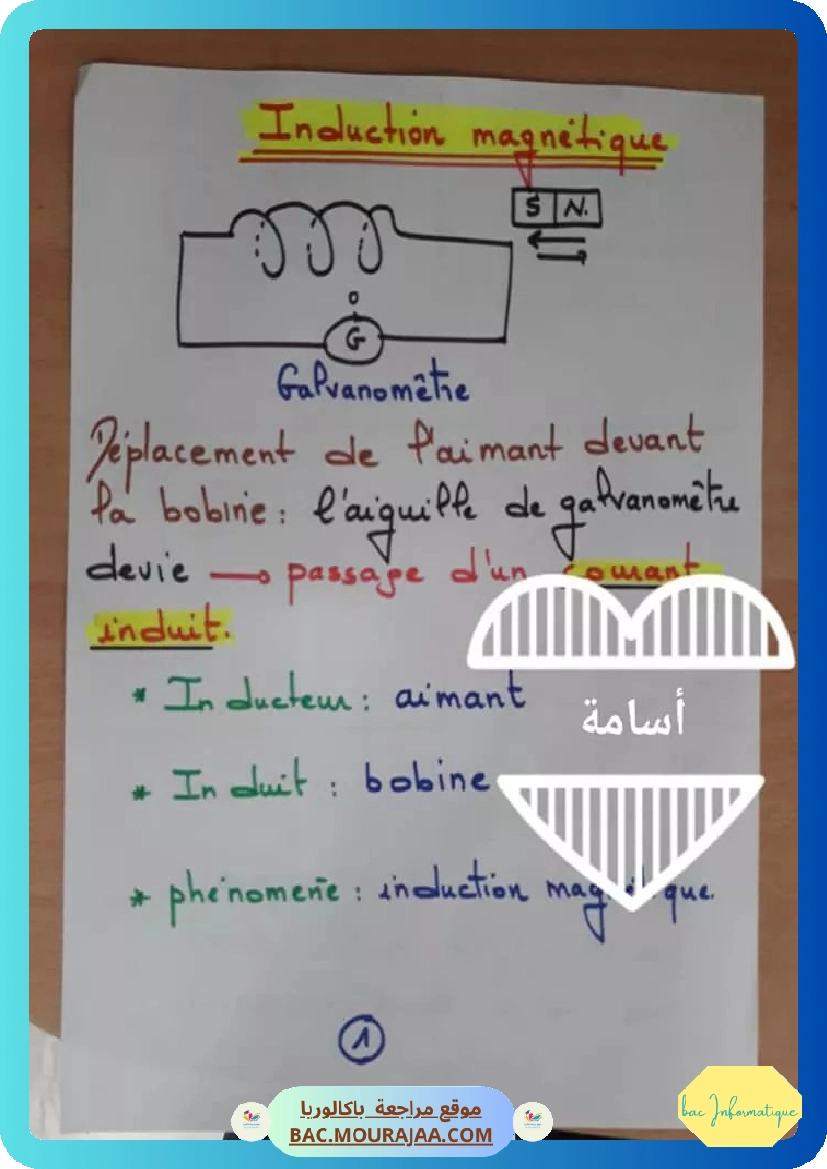 Induction magnétique
S N.
O
G
Galvanomètre
Déplacement de l'aimant devant
la bobine : l'aiguille de galvanomètre
devie → passage d'un courant
induit.
* Inducteur : aimant
أسامة
* Induit : bobine
* phénomène : induction magnétique.
1
bac Informatique
موقع مراجعة باكالوريا
BAC.MOURAJAA.COM